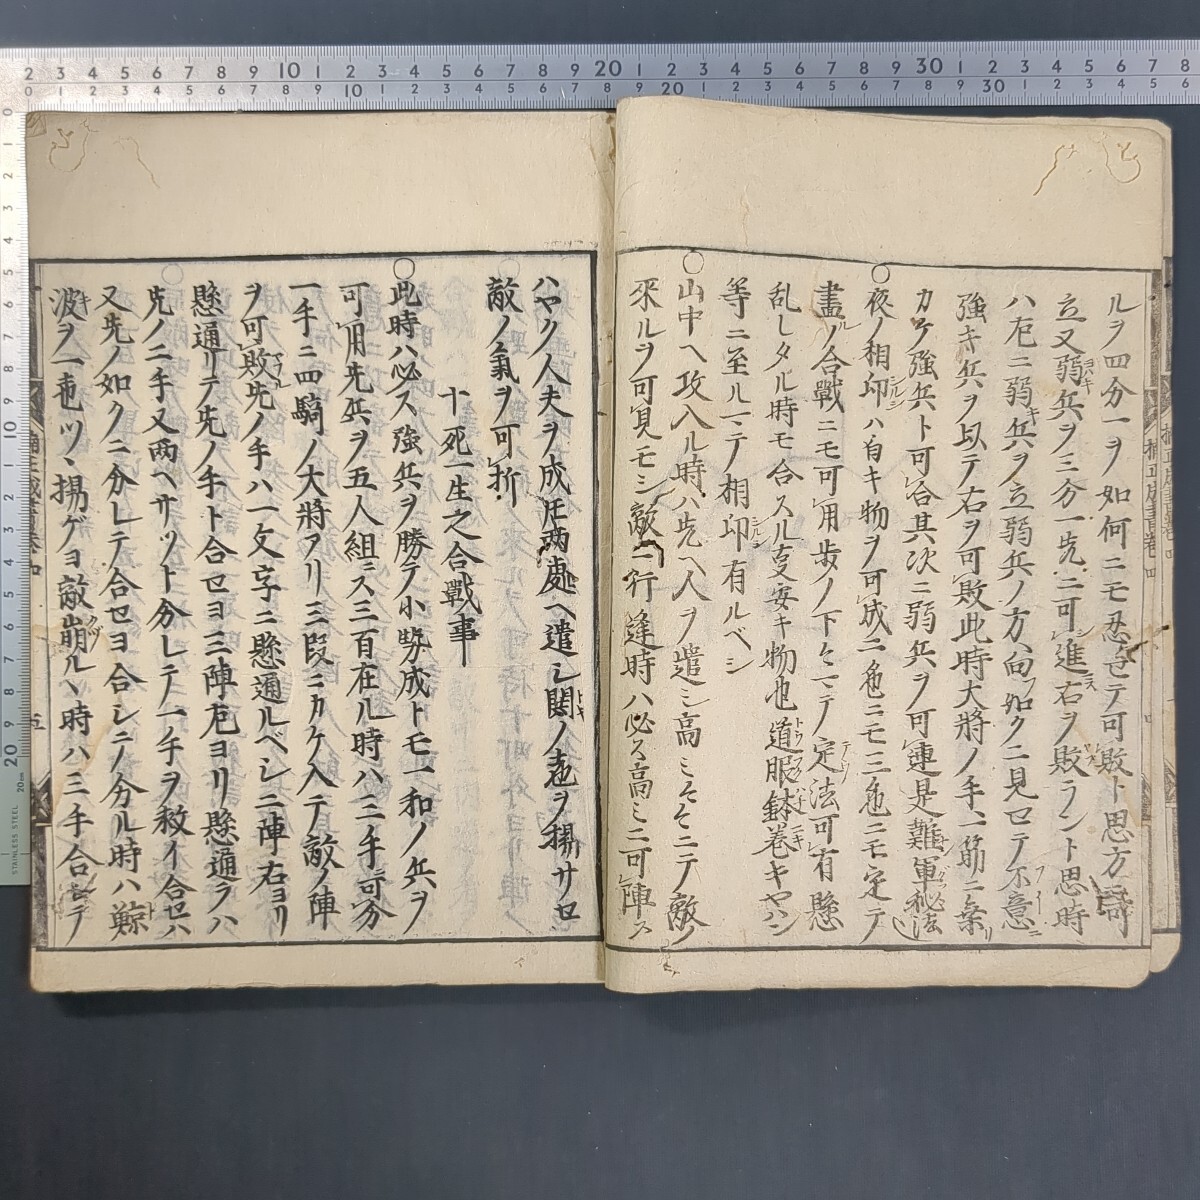 ルヲ四分一ヲ如何ニモ忍セテ可敗ト思方
立又弱兵ヲ三分一先ニ可進右ヲ敗ラント思時
ハ左ニ弱兵ヲ立弱兵ノ方ヘ向如クニ見セテ不意
強キ兵ヲ以テ右ヲ可敗此時大將ノ手一筋ニ乗
カケ強兵ト可合其次ニ弱兵ヲ可連是難軍秘法
○夜ノ相印ハ白キ物ヲ可成二色ニモ三色ニモ定テ
晝ノ合戰ニモ可用歩ノ下々マテノ定法可有懸
乱レタル時モ合スル支安キ物也道服鉢巻キヤハン
等ニ至ルマテ相印有ルベシ
○山中ヘ攻入ル時ハ先ヘ人ヲ遣シ高ミ々々ニテ敵ノ
来ルヲ可見モシ敵ニ行逢時ハ必ス高ミニ可陣ス
ハヤク人夫ヲ成圧両處ヘ遣シ鬨ノ声ヲ揚サセ
敵ノ氣ヲ可折
十死一生之合戰事
○此時ハ必ス強兵ヲ勝テ小勢成トモ一和ノ兵ヲ
可用先兵ヲ五人組ニス三百在ル時ハ三手ニ可分
一手ニ四騎ノ大將アリ三段ニカケ入テ敵ノ陣
ヲ可敗先ノ手ハ一文字ニ懸通ルベシ二陣右ヨリ
懸通リテ先ノ手ト合セヨ三陣左ヨリ懸通ラハ
先ノ二手又両ヘサツト分レテ一手ヲ救イ合セハ
又先ノ如ク二分レテ合セヨ合レニノ分ル時ハ鯨
波ヲ一声ツヽ揚ゲヨ敵崩ルヽ時ハ三手合シテ
楠正成書巻四
五
2 3 4 5 6 7 8 9 10 1 2 3 4 5 6 7 8 9 20 1 2 3 4 5 6 7 8 9 30 1 2 3 4 5 6 7 8
STAINLESS STEEL
20cm